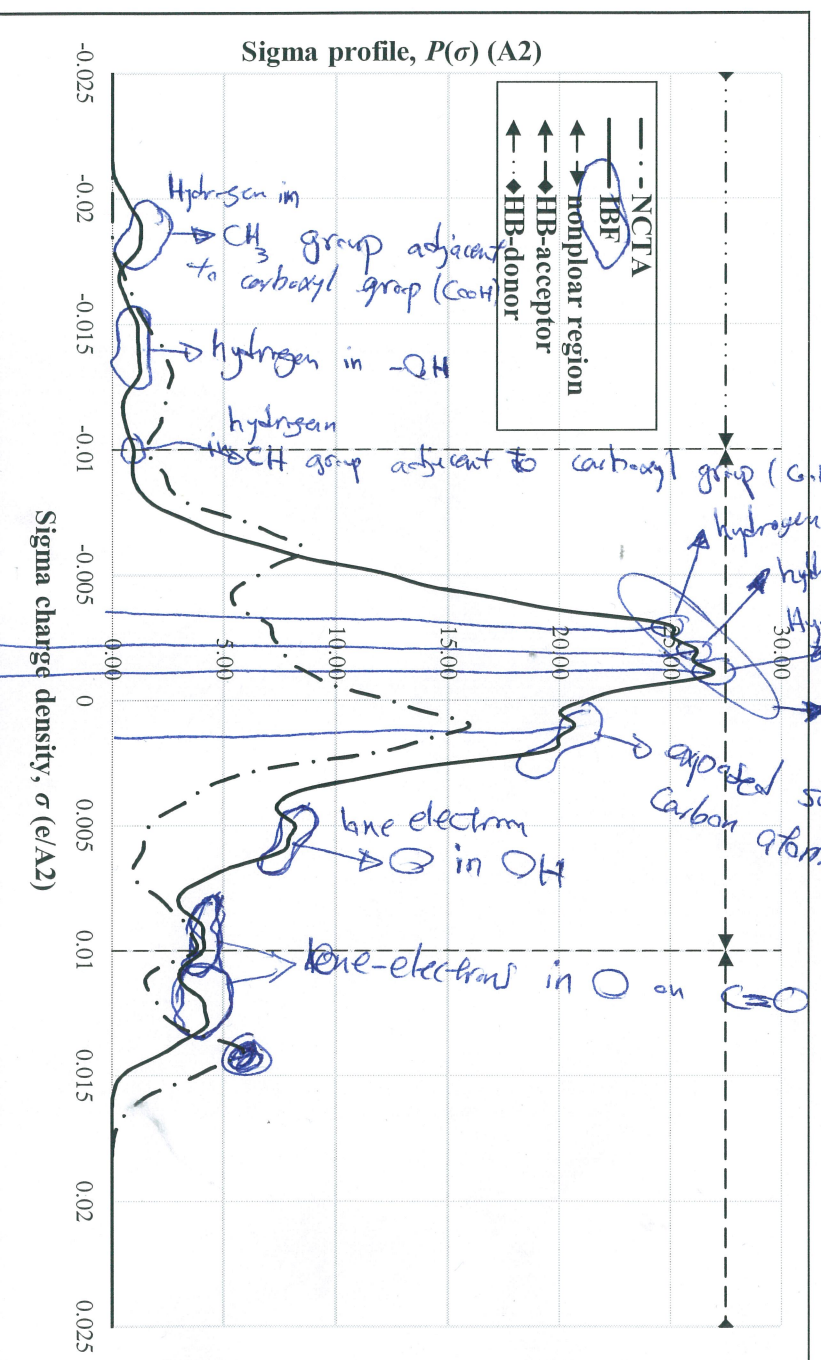 Sigma profile, P(σ) (A2)
30.000
25.000
20.000
15.000
10.000
5.000
0.000
-0.025
-0.02
-0.015
-0.01
-0.005
0
0.005
0.01
0.015
0.02
0.025
Sigma charge density, σ (e/A2)
NCTA
IBF
nonploar region
HB-acceptor
HB-donor
Hydrogen in
CH3 group adjacent
to carboxyl group (COOH)
hydrogen in -OH
hydrogen
in CH group adjacent to carboxyl group (
hydrogen
exposed
carbon atom
lone electron
O in OH
lone-electrons in O on C=O